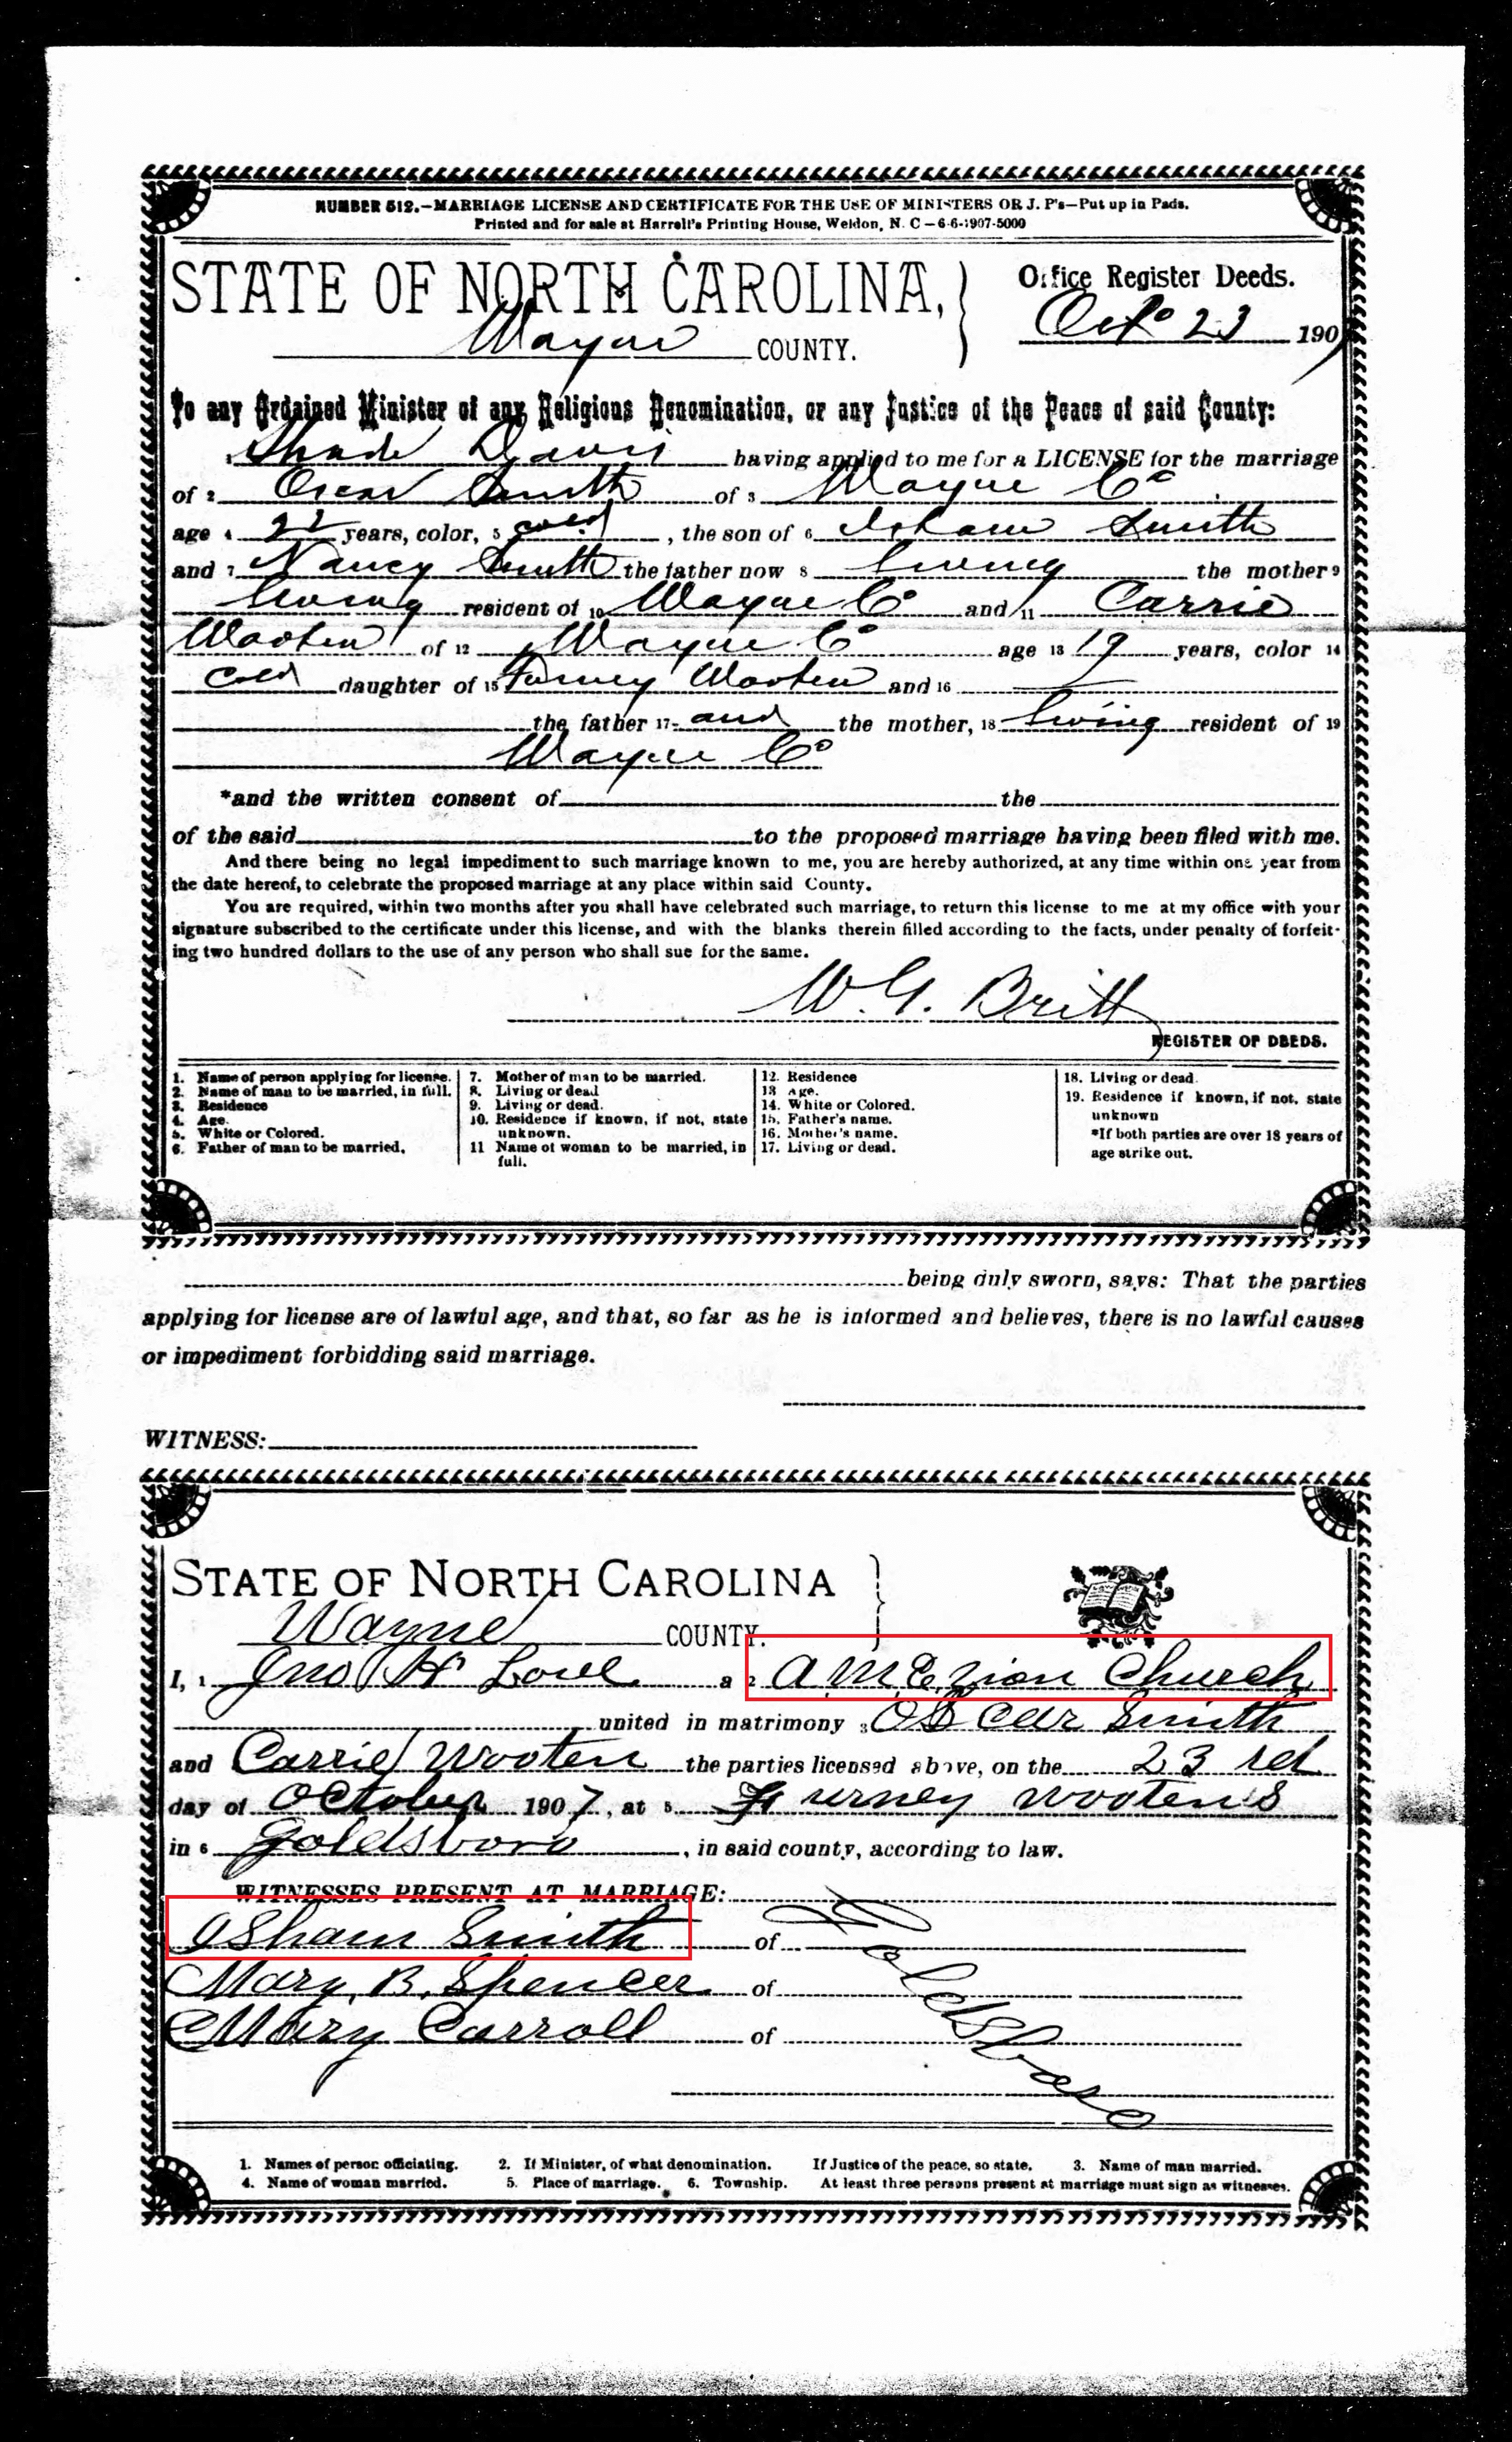 NUMBER 512.—MARRIAGE LICENSE AND CERTIFICATE FOR THE USE OF MINISTERS OR J. P's—Put up in Pads.
Printed and for sale at Harrell's Printing House, Weldon, N. C—6-6-1907-5000
STATE OF NORTH CAROLINA,
Office Register Deeds.
Wayne COUNTY.
Oct 23 1907
To any Ordained Minister of any Religious Denomination, or any Justice of the Peace of said County:
1 Shade Davis having applied to me for a LICENSE for the marriage
of 2 Oscar Smith of 3 Wayne Co
age 4 years, color, 5 cold, the son of 6 Isham Smith
and 7 Nancy Smith the father now 8 living the mother 9
living resident of 10 Wayne Co and 11 Carrie
Wooten of 12 Wayne Co age 13 19 years, color 14
Cold daughter of 15 Furney Wooten and 16
the father 17 and the mother, 18 living resident of 19
Wayne Co
*and the written consent of the
of the said to the proposed marriage having been filed with me.
And there being no legal impediment to such marriage known to me, you are hereby authorized, at any time within one year from
the date hereof, to celebrate the proposed marriage at any place within said County.
You are required, within two months after you shall have celebrated such marriage, to return this license to me at my office with your
signature subscribed to the certificate under this license, and with the blanks therein filled according to the facts, under penalty of forfeit-
ing two hundred dollars to the use of any person who shall sue for the same.
W. G. Britt
REGISTER OF DEEDS.
1. Name of person applying for license.
2. Name of man to be married, in full.
3. Residence
4. Age.
5. White or Colored.
6. Father of man to be married.
7. Mother of man to be married.
8. Living or dead
9. Living or dead.
10. Residence if known, if not, state
unknown.
11 Name of woman to be married, in
full.
12. Residence
13 Age.
14. White or Colored.
15. Father's name.
16. Mother's name.
17. Living or dead.
18. Living or dead
19. Residence if known, if not, state
unknown
*If both parties are over 18 years of
age strike out.
being duly sworn, says: That the parties
applying for license are of lawful age, and that, so far as he is informed and believes, there is no lawful causes
or impediment forbidding said marriage.
WITNESS:
STATE OF NORTH CAROLINA
Wayne COUNTY.
I, 1 Jno H Love a 2 A.M.E. Zion Church
united in matrimony 3 Oscar Smith
and Carrie Wooten the parties licensed above, on the 23 rd
day of October 1907, at 5 Furney Wootens
in 6 Goldsboro, in said county, according to law.
WITNESSES PRESENT AT MARRIAGE:
Isham Smith of
Mary B. Spencer of
Mary Carroll of
Goldsboro
1. Names of person officiating. 2. If Minister, of what denomination. If Justice of the peace, so state. 3. Name of man married.
4. Name of woman married. 5. Place of marriage. 6. Township. At least three persons present at marriage must sign as witnesses.